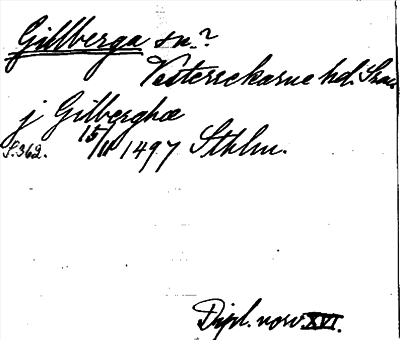 Gillberga sn.?
Vesterrekarne hd.
j Gilberghæ
S. 362. 15/11 1497 Sthlm.
Dipl. norv. XVI.